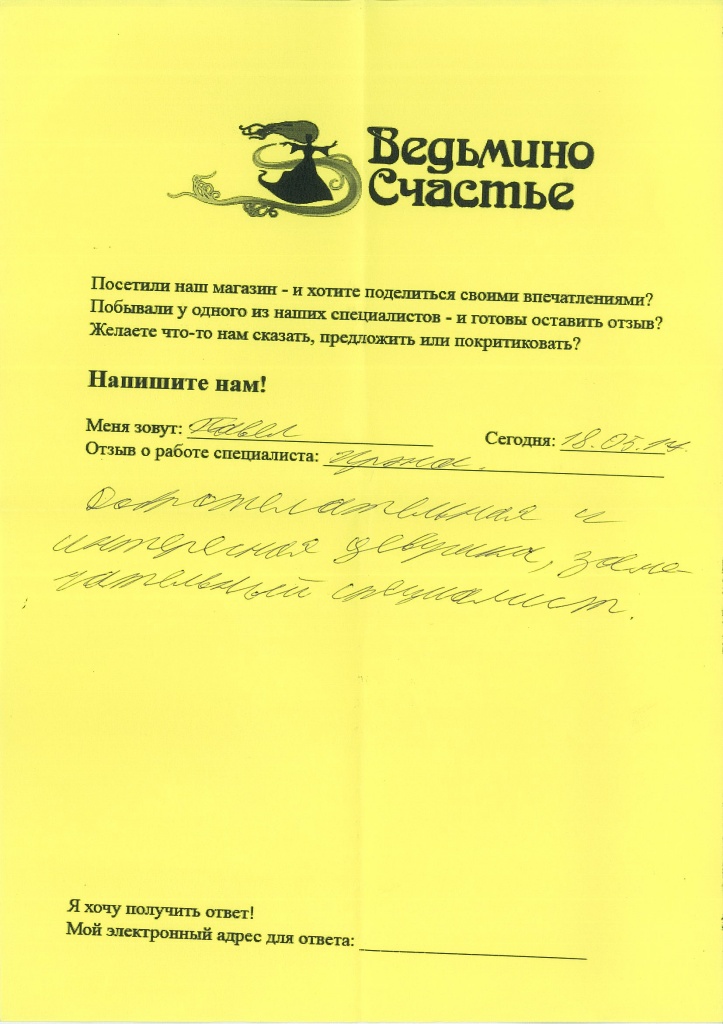 Ведьмино
Счастье
Посетили наш магазин - и хотите поделиться своими впечатлениями?
Побывали у одного из наших специалистов - и готовы оставить отзыв?
Желаете что-то нам сказать, предложить или покритиковать?
Напишите нам!
Меня зовут: Павел Сегодня: 18.05.14.
Отзыв о работе специалиста: Ирэна.
Доброжелательная и
интересная девушка, заме-
чательный специалист.
Я хочу получить ответ!
Мой электронный адрес для ответа: